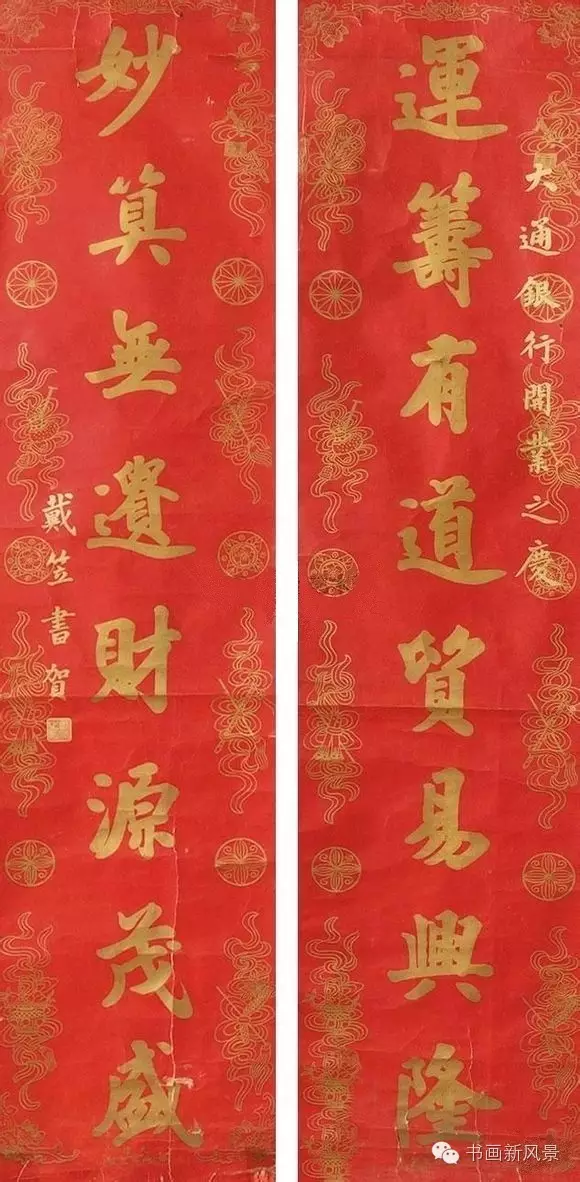 大通銀行開業之慶
運籌有道貿易興隆
妙算無遺財源茂盛
戴笠書賀
书画新风景